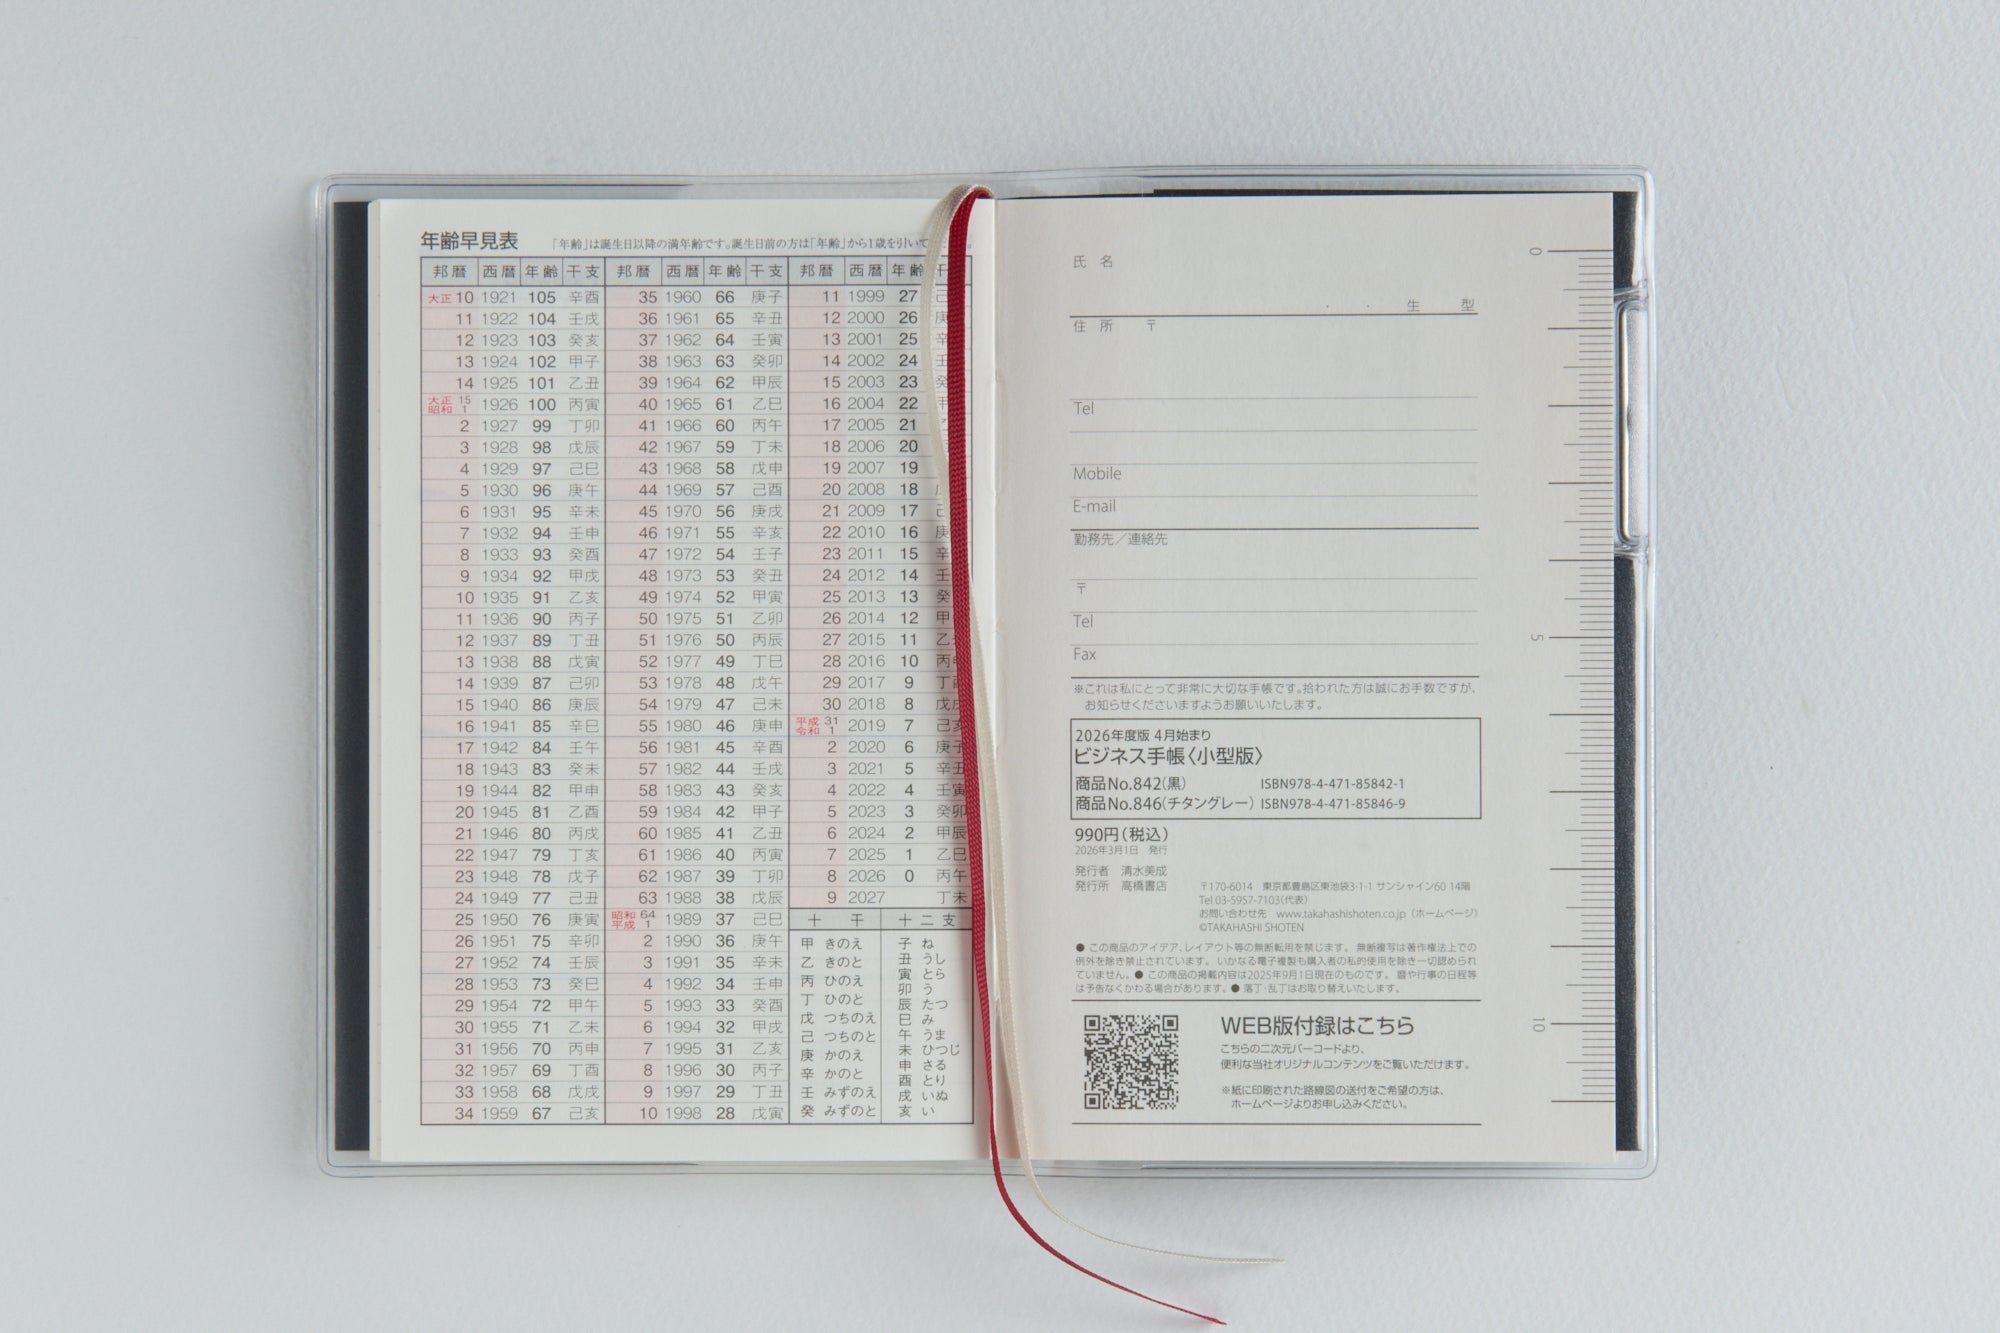 年齢早見表 「年齢」は誕生日以降の満年齢です。誕生日前の方は「年齢」から1歳を引いて
邦暦 西暦 年齢 干支 邦暦 西暦 年齢 干支 邦暦 西暦 年齢
大正10 1921 105 辛酉 35 1960 66 庚子 11 1999 27
11 1922 104 壬戌 36 1961 65 辛丑 12 2000 26
12 1923 103 癸亥 37 1962 64 壬寅 13 2001 25
13 1924 102 甲子 38 1963 63 癸卯 14 2002 24
14 1925 101 乙丑 39 1964 62 甲辰 15 2003 23
大正15 昭和1 1926 100 丙寅 40 1965 61 乙巳 16 2004 22
2 1927 99 丁卯 41 1966 60 丙午 17 2005 21
3 1928 98 戊辰 42 1967 59 丁未 18 2006 20
4 1929 97 己巳 43 1968 58 戊申 19 2007 19
5 1930 96 庚午 44 1969 57 己酉 20 2008 18
6 1931 95 辛未 45 1970 56 庚戌 21 2009 17
7 1932 94 壬申 46 1971 55 辛亥 22 2010 16
8 1933 93 癸酉 47 1972 54 壬子 23 2011 15
9 1934 92 甲戌 48 1973 53 癸丑 24 2012 14
10 1935 91 乙亥 49 1974 52 甲寅 25 2013 13
11 1936 90 丙子 50 1975 51 乙卯 26 2014 12
12 1937 89 丁丑 51 1976 50 丙辰 27 2015 11
13 1938 88 戊寅 52 1977 49 丁巳 28 2016 10 丙申
14 1939 87 己卯 53 1978 48 戊午 29 2017 9 丁酉
15 1940 86 庚辰 54 1979 47 己未 30 2018 8 戊戌
16 1941 85 辛巳 55 1980 46 庚申 平成31 令和1 2019 7 己亥
17 1942 84 壬午 56 1981 45 辛酉 2 2020 6 庚子
18 1943 83 癸未 57 1982 44 壬戌 3 2021 5 辛丑
19 1944 82 甲申 58 1983 43 癸亥 4 2022 4 壬寅
20 1945 81 乙酉 59 1984 42 甲子 5 2023 3 癸卯
21 1946 80 丙戌 60 1985 41 乙丑 6 2024 2 甲辰
22 1947 79 丁亥 61 1986 40 丙寅 7 2025 1 乙巳
23 1948 78 戊子 62 1987 39 丁卯 8 2026 0 丙午
24 1949 77 己丑 63 1988 38 戊辰 9 2027 丁未
25 1950 76 庚寅 昭和64 平成1 1989 37 己巳
26 1951 75 辛卯 2 1990 36 庚午
27 1952 74 壬辰 3 1991 35 辛未
28 1953 73 癸巳 4 1992 34 壬申
29 1954 72 甲午 5 1993 33 癸酉
30 1955 71 乙未 6 1994 32 甲戌
31 1956 70 丙申 7 1995 31 乙亥
32 1957 69 丁酉 8 1996 30 丙子
33 1958 68 戊戌 9 1997 29 丁丑
34 1959 67 己亥 10 1998 28 戊寅
十干
甲 きのえ
乙 きのと
丙 ひのえ
丁 ひのと
戊 つちのえ
己 つちのと
庚 かのえ
辛 かのと
壬 みずのえ
癸 みずのと
十二支
子 ね
丑 うし
寅 とら
卯 う
辰 たつ
巳 み
午 うま
未 ひつじ
申 さる
酉 とり
戌 いぬ
亥 い
氏 名
・ ・ 生 型
住 所 〒
Tel
Mobile
E-mail
勤務先／連絡先
〒
Tel
Fax
※これは私にとって非常に大切な手帳です。拾われた方は誠にお手数ですが、
お知らせくださいますようお願いいたします。
2026年度版 4月始まり
ビジネス手帳〈小型版〉
商品No.842（黒） ISBN978-4-471-85842-1
商品No.846（チタングレー） ISBN978-4-471-85846-9
990円（税込）
2026年3月1日 発行
発行者 清水美成
発行所 高橋書店 〒170-6014 東京都豊島区東池袋3-1-1 サンシャイン60 14階
Tel 03-5957-7103（代表）
お問い合わせ先 www.takahashishoten.co.jp（ホームページ）
©TAKAHASHI SHOTEN
● この商品のアイデア、レイアウト等の無断転用を禁じます。 無断複写は著作権法上での
例外を除き禁止されています。 いかなる電子複製も購入者の私的使用を除き一切認められ
ていません。● この商品の掲載内容は2025年9月1日現在のものです。 暦や行事の日程等
は予告なくかわる場合があります。● 落丁・乱丁はお取り替えいたします。
WEB版付録はこちら
こちらの二次元バーコードより、
便利な当社オリジナルコンテンツをご覧いただけます。
※紙に印刷された路線図の送付をご希望の方は、
ホームページよりお申し込みください。
0
5
10